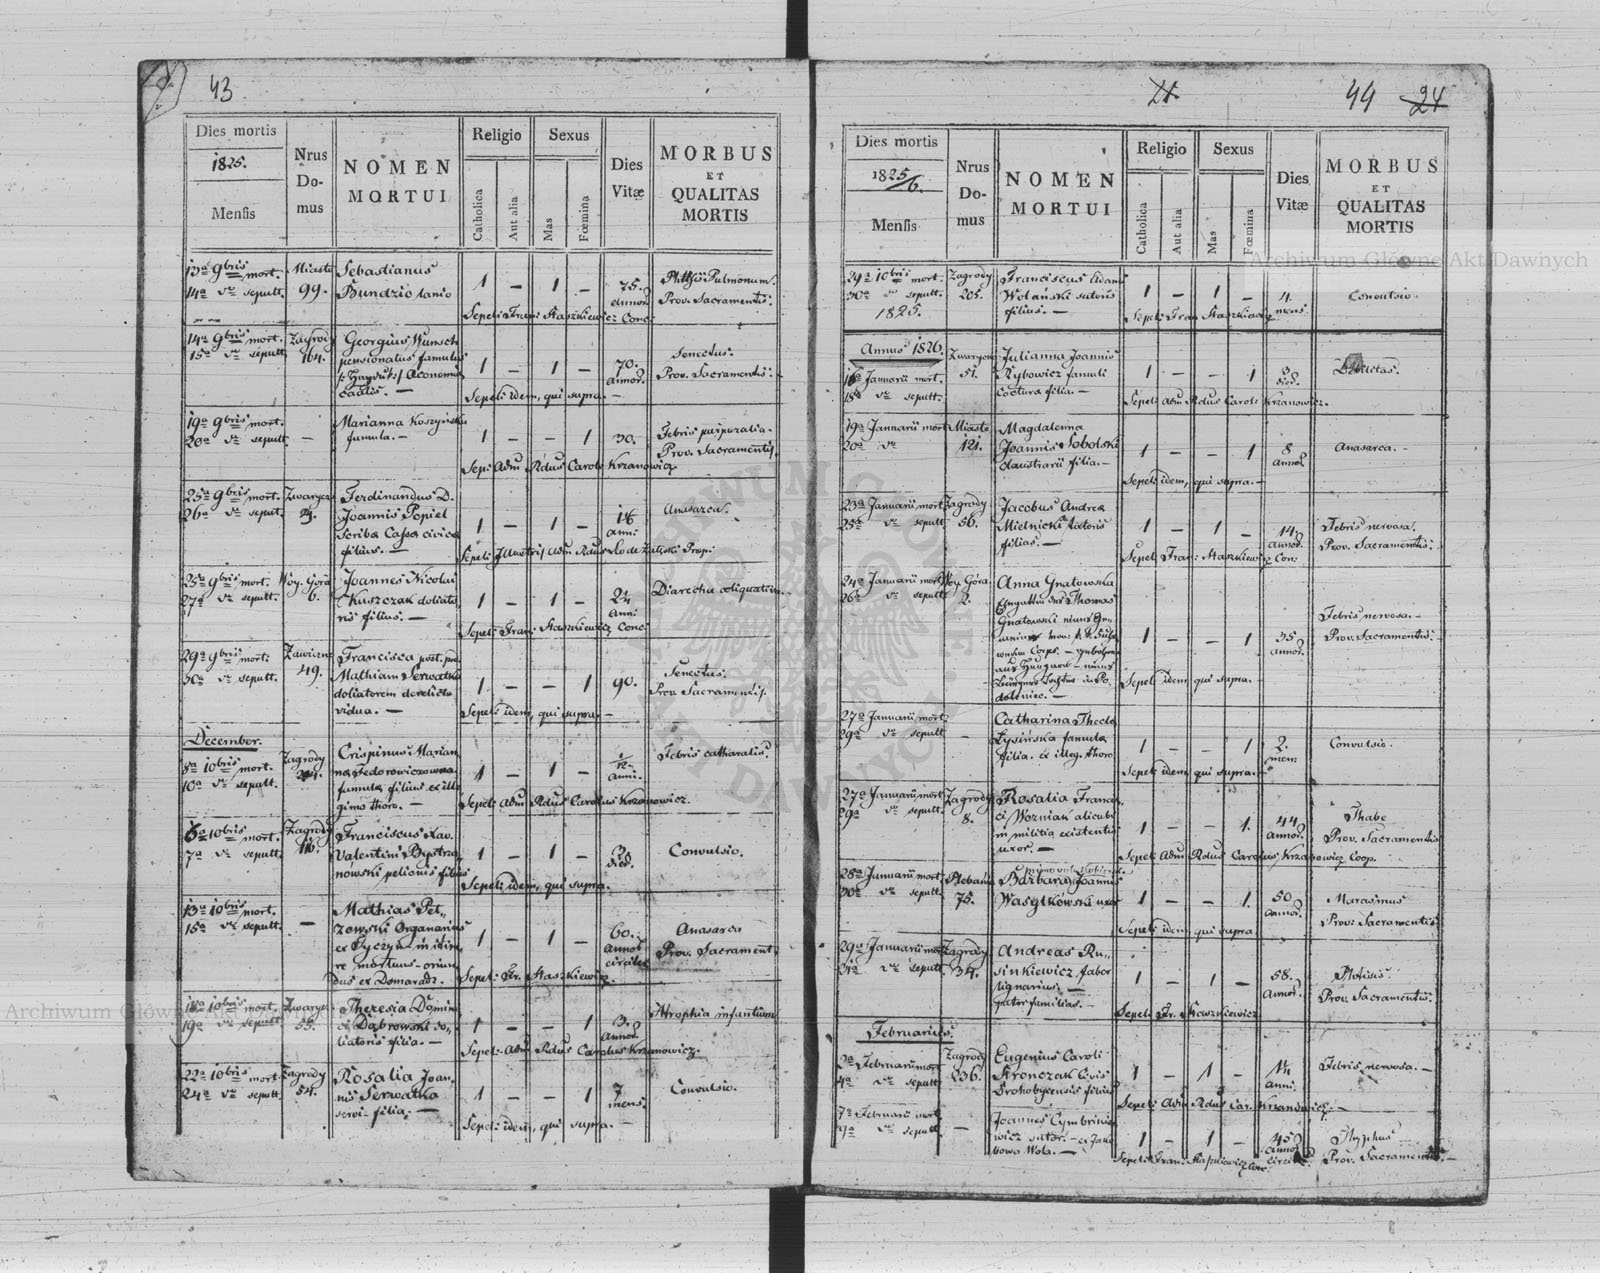 43
Dies mortis
1825.
Mensis
Nrus
Do-
mus
NOMEN
MORTUI
Religio
Catholica
Aut alia
Sexus
Mas
Fœmina
Dies
Vitæ
MORBUS
ET
QUALITAS
MORTIS
13a 9bris mort.
14a sepult.
Miasto
99.
Sebastianus
Bundzio lanio
1 – 1 –
75.
annor.
Pulmonum.
Prov. Sacramentis.
Sepel: Fran: Staszkiewicz Conc:
14a 9bris mort.
15a sepult.
Zagrody
164.
Georgius Wunsch
pensionatus famulus
1 – 1 –
70.
annor.
Senectus.
Prov. Sacramentis.
Sepel: idem, qui supra. –
19a 9bris mort.
20a sepult.
–
Marianna Koszyńska
famula. –
1 – – 1
30.
Febris
Prov. Sacramentis.
Sep: Adm Rdus Carol: Krzanowicz
25a 9bris mort.
26a sepult.
Zwarycz
Ferdinandus D.
Joannis Popiel
Scriba Cassa civica
filius. –
1 – 1 –
anni
Anasarca.
25a 9bris mort.
27a sepult.
Woy. Gora
6.
Joannes Nicolai
Kuszczak doliato-
ris filius. –
1 – 1 –
anni
Diarrhea coliquativa.
Sepel: Fran: Staszkiewicz Conc:
29a 9bris mort:
30a sepult.
49.
Francisca post. p.m.
Mathiam Serwatka
doliatorem derelicta
vidua. –
1 – – 1
90.
Senectus.
Prov. Sacramentis.
Sepel: idem, qui supra. –
December.
8a 10bris mort.
10a sepult.
Zagrody
Crispinus Marian-
na Fedorowiczowna
famula filius ex ille-
gimo thoro. –
1 – 1 –
anni.
Febris catharalis.
Sepel: Adm Rdus Carolus Krzanowicz.
6a 10bris mort.
7a sepult.
Zagrody
Franciscus Xav.
Valentini Bystrza-
nowski pelionis filius
1 – 1 –
3.
dies.
Convulsio.
Sepel: idem, qui supra.
13a 10bris mort.
15a sepult.
–
Mathias Pet-
zowski Organarius
in itine-
re mortuus – oriun-
dus ex Domaradz.
1 – 1 –
60.
annor
circiter
Anasarca
Prov. Sacrament.
Sepel: Fr. Staszkiewicz.
18a 10bris mort.
19a sepult.
Zwarycz.
55.
Theresia Domini-
ci Dąbrowski do-
liatoris filia. –
1 – – 1
3.
Annor.
Atrophia infantium
Sepel: Adm Rdus Carolus Krzanowicz.
22a 10bris mort.
24a sepult.
Zagrody
54.
Rosalia Joan-
nis Serwatka
servi filia. –
1 – – 1
7
mens.
Convulsio.
Sepel: idem, qui supra. –
44
24
Dies mortis
1825/6.
Mensis
Nrus
Do-
mus
NOMEN
MORTUI
Religio
Catholica
Aut alia
Sexus
Mas
Fœmina
Dies
Vitæ
MORBUS
ET
QUALITAS
MORTIS
29a 10bris mort.
30a sepult.
1825.
Zagrody
205.
Franciscus Adami
Wolański sutoris
filius. –
1 – 1 –
4.
mens.
Convulsio.
Sepel: Fran: Staszkiewicz
Annus 1826.
Januarii mort.
18a sepult.
51.
Julianna Joannis
Rybowicz famuli
filia. –
1 – – 1
Debilitas.
Sepel: Adm Rdus Carol: Krzanowicz.
19a Januarii mort
20a
Miasto
121.
Magdalenna
Joannis Sobolski
claustrarii filia. –
1 – – 1
8
annor.
Anasarca. –
Sepel: idem, qui supra. –
23a Januarii mort
25a sepult.
Zagrody
56.
Jacobus Andrea
Mielnicki
filius. –
1 – 1 –
14.
annor.
Febris nervosa.
Prov. Sacramentis.
Sepel: Fran: Staszkiewicz Con:
24a Januarii mort
26a sepult.
Woy. Góra.
2.
Anna Gnatowska
Thomas
Gnatowski
1 – – 1
35
annor.
Febris nervosa. –
Prov. Sacramentis.
Sepel: idem, qui supra. –
27a Januarii mort.
29a sepult.
–
Catharina Thecla
Łysińska famula
filia. ex illeg. thoro
1 – – 1
2.
mens.
Convulsio.
Sepel: idem, qui supra. –
27a Januarii mort
29a sepult.
Zagrody
8.
Rosalia Franci-
ci Wozniak alicubi
in militia existentis
uxor. –
1 – – 1.
44
annor.
Thabe
Prov. Sacramentis
Sepel: Adm Rdus Carolus Krzanowicz Coop.
28a Januarii mort.
30a sepult.
Plebania
75.
Barbara Joannis
Wasylkowski uxor
1 – – 1.
50.
annor.
Marasmus
Prov. Sacramentis.
Sepel: idem qui supra
29a Januarii mort
31a sepult.
Zagrody
34.
Andreas Ru-
sinkiewicz faber
lignarius. –
pater familias. –
1 – 1 –
58.
Annor.
Phtisis.
Prov. Sacramentis.
Sepel: Fr. Staszkiewicz
Februarius.
Februarii mort
4a sepult.
Zagrody
236.
Eugenius Caroli
Kronczak Civis
Drohobycensis filius
1 – 1 –
anni.
Febris nervosa. –
Sepel: Adm Rdus Car. Krzanowicz. –
7a Februarii mort.
sepult.
–
Joannes Cymbrkie-
wicz sutor. – ex Jaku-
bowa Wola. –
1 – 1 –
45
annor
circiter.
Thyphus
Prov. Sacramentis. –
Sepel: Fran: Staszkiewicz Con:
Archiwum Główne Akt Dawnych
Archiwum Główne Akt Dawnych
ARCHIWUM GŁÓWNE AKT DAWNYCH